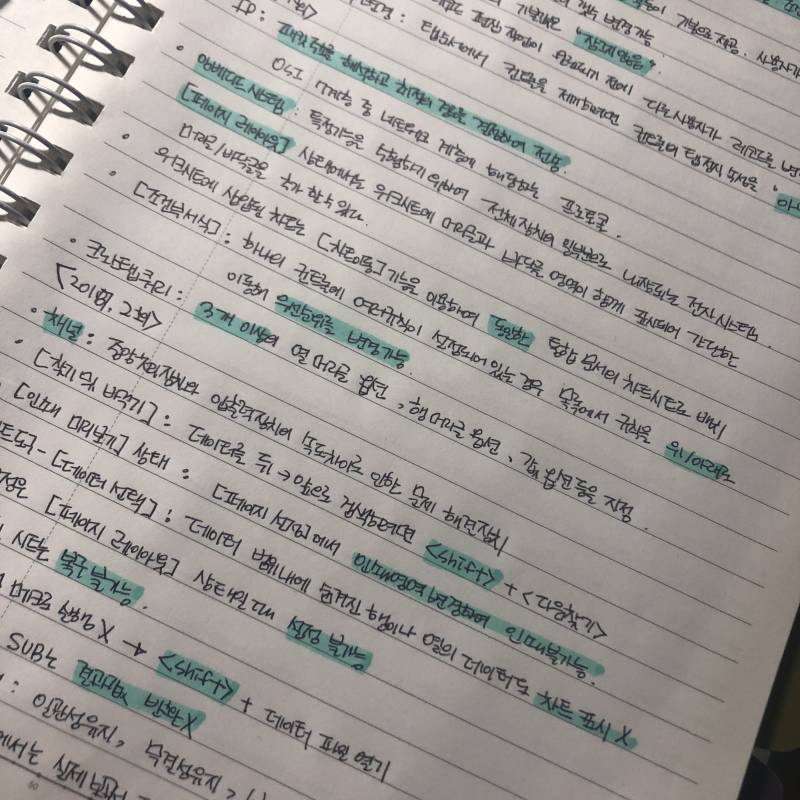 기본으로 제공. 사용자가
갯수 변경 가능
기본값은 "잠그지 않음"
편집 작업이 완료되기 전에 다른 사용자가 레코드를 변
: 탭 순서에서 컨트롤을 제외하려면 컨트롤의 탭 정지 속성을 "아니
IP : 패킷 주소를 해석하고 최적의 경로를 결정하여 전송
OSI 7계층 중 네트워크 계층에 해당하는 프로토콜.
• 임베디드 시스템 : 특정기능을 수행하기 위하여 전체 장치의 일부분으로 내장되는 전자 시스템.
[페이지 레이아웃] 상태에서는 워크시트에 머리글과 바닥글 영역이 함께 표시되어 간단한
머리글/바닥글을 추가할 수 있다.
• 워크시트에 삽입된 차트는 [차트이동] 기능을 이용하여 동일한 통합 문서의 차트시트로 배치
• [조건부서식] : 하나의 컨트롤에 여러 규칙이 설정되어 있는 경우 목록에서 규칙을 위/아래로
이동해 우선순위를 변경가능.
• 크로스탭쿼리 : 3개 이상의 열 머리글 옵션, 행 머리글 옵션, 값 옵션 등을 지정.
<2018, 2회>
• 채널 : 중앙처리장치와 입출력장치의 속도차이로 인한 문제 해결장치
• [찾기 및 바꾸기] : 데이터를 뒤→앞으로 검색하려면 <shift> + <다음찾기>
[인쇄 미리보기] 상태 : [페이지 설정]에서 인쇄영역 변경하여 인쇄불가능.
트도구 - [데이터 선택] : 데이터 범위내에 숨겨진 행이나 열의 데이터도 차트 표시 X
[페이지 레이아웃] 상태일 때 설정 불가능
시트는 복구 불가능.
매크로 실행 X → <shift> + 데이터 파일 열기
SUB는 결과값 반환 X
: 일관성유지,
에서는 실제 보고서